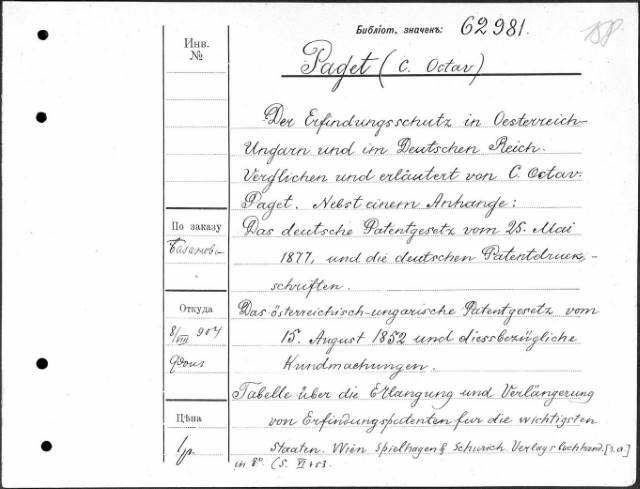 Библіот. значекъ: 62981.
Инв.
№
Paget (C. Octav)
Der Erfindungsschutz in Oesterreich-
Ungarn und im Deutschen Reich.
Verglichen und erläutert von C. Octav.
Paget. Nebst einem Anhange:
По заказу
Das deutsche Patentgesetz vom 25. Mai
1877, und die deutschen Patentdruck-
schriften.
Откуда
Das österreichisch-ungarische Patentgesetz vom
8/VII 904
15. August 1852 und diessbezügliche
Kundmachungen.
Tabelle über die Erlangung und Verlängerung
Цѣна
von Erfindungspatenten für die wichtigsten
Staaten. Wien Spielhagen & Schurich Verlagsbuchhand. [s.a]
in 8° (5. VI + 53